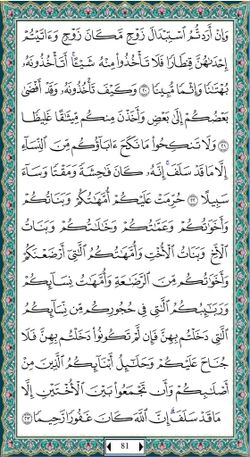 وَإِنْ أَرَدتُّمُ ٱسْتِبْدَالَ زَوْجٍ مَّكَانَ زَوْجٍ وَءَاتَيْتُمْ
إِحْدَىٰهُنَّ قِنطَارًا فَلَا تَأْخُذُوا۟ مِنْهُ شَيْـًٔا ۚ أَتَأْخُذُونَهُۥ
بُهْتَٰنًا وَإِثْمًا مُّبِينًا ٢٠ وَكَيْفَ تَأْخُذُونَهُۥ وَقَدْ أَفْضَىٰ
بَعْضُكُمْ إِلَىٰ بَعْضٍ وَأَخَذْنَ مِنكُم مِّيثَٰقًا غَلِيظًا
٢١ وَلَا تَنكِحُوا۟ مَا نَكَحَ ءَابَآؤُكُم مِّنَ ٱلنِّسَآءِ
إِلَّا مَا قَدْ سَلَفَ ۚ إِنَّهُۥ كَانَ فَٰحِشَةً وَمَقْتًا وَسَآءَ
سَبِيلًا ٢٢ حُرِّمَتْ عَلَيْكُمْ أُمَّهَٰتُكُمْ وَبَنَاتُكُمْ
وَأَخَوَٰتُكُمْ وَعَمَّٰتُكُمْ وَخَٰلَٰتُكُمْ وَبَنَاتُ
ٱلْأَخِ وَبَنَاتُ ٱلْأُخْتِ وَأُمَّهَٰتُكُمُ ٱلَّٰتِىٓ أَرْضَعْنَكُمْ
وَأَخَوَٰتُكُم مِّنَ ٱلرَّضَٰعَةِ وَأُمَّهَٰتُ نِسَآئِكُمْ
وَرَبَٰٓئِبُكُمُ ٱلَّٰتِى فِى حُجُورِكُم مِّن نِّسَآئِكُمُ
ٱلَّٰتِى دَخَلْتُم بِهِنَّ فَإِن لَّمْ تَكُونُوا۟ دَخَلْتُم بِهِنَّ فَلَا
جُنَاحَ عَلَيْكُمْ وَحَلَٰٓئِلُ أَبْنَآئِكُمُ ٱلَّذِينَ مِنْ
أَصْلَٰبِكُمْ وَأَن تَجْمَعُوا۟ بَيْنَ ٱلْأُخْتَيْنِ إِلَّا
مَا قَدْ سَلَفَ ۗ إِنَّ ٱللَّهَ كَانَ غَفُورًا رَّحِيمًا ٢٣
81